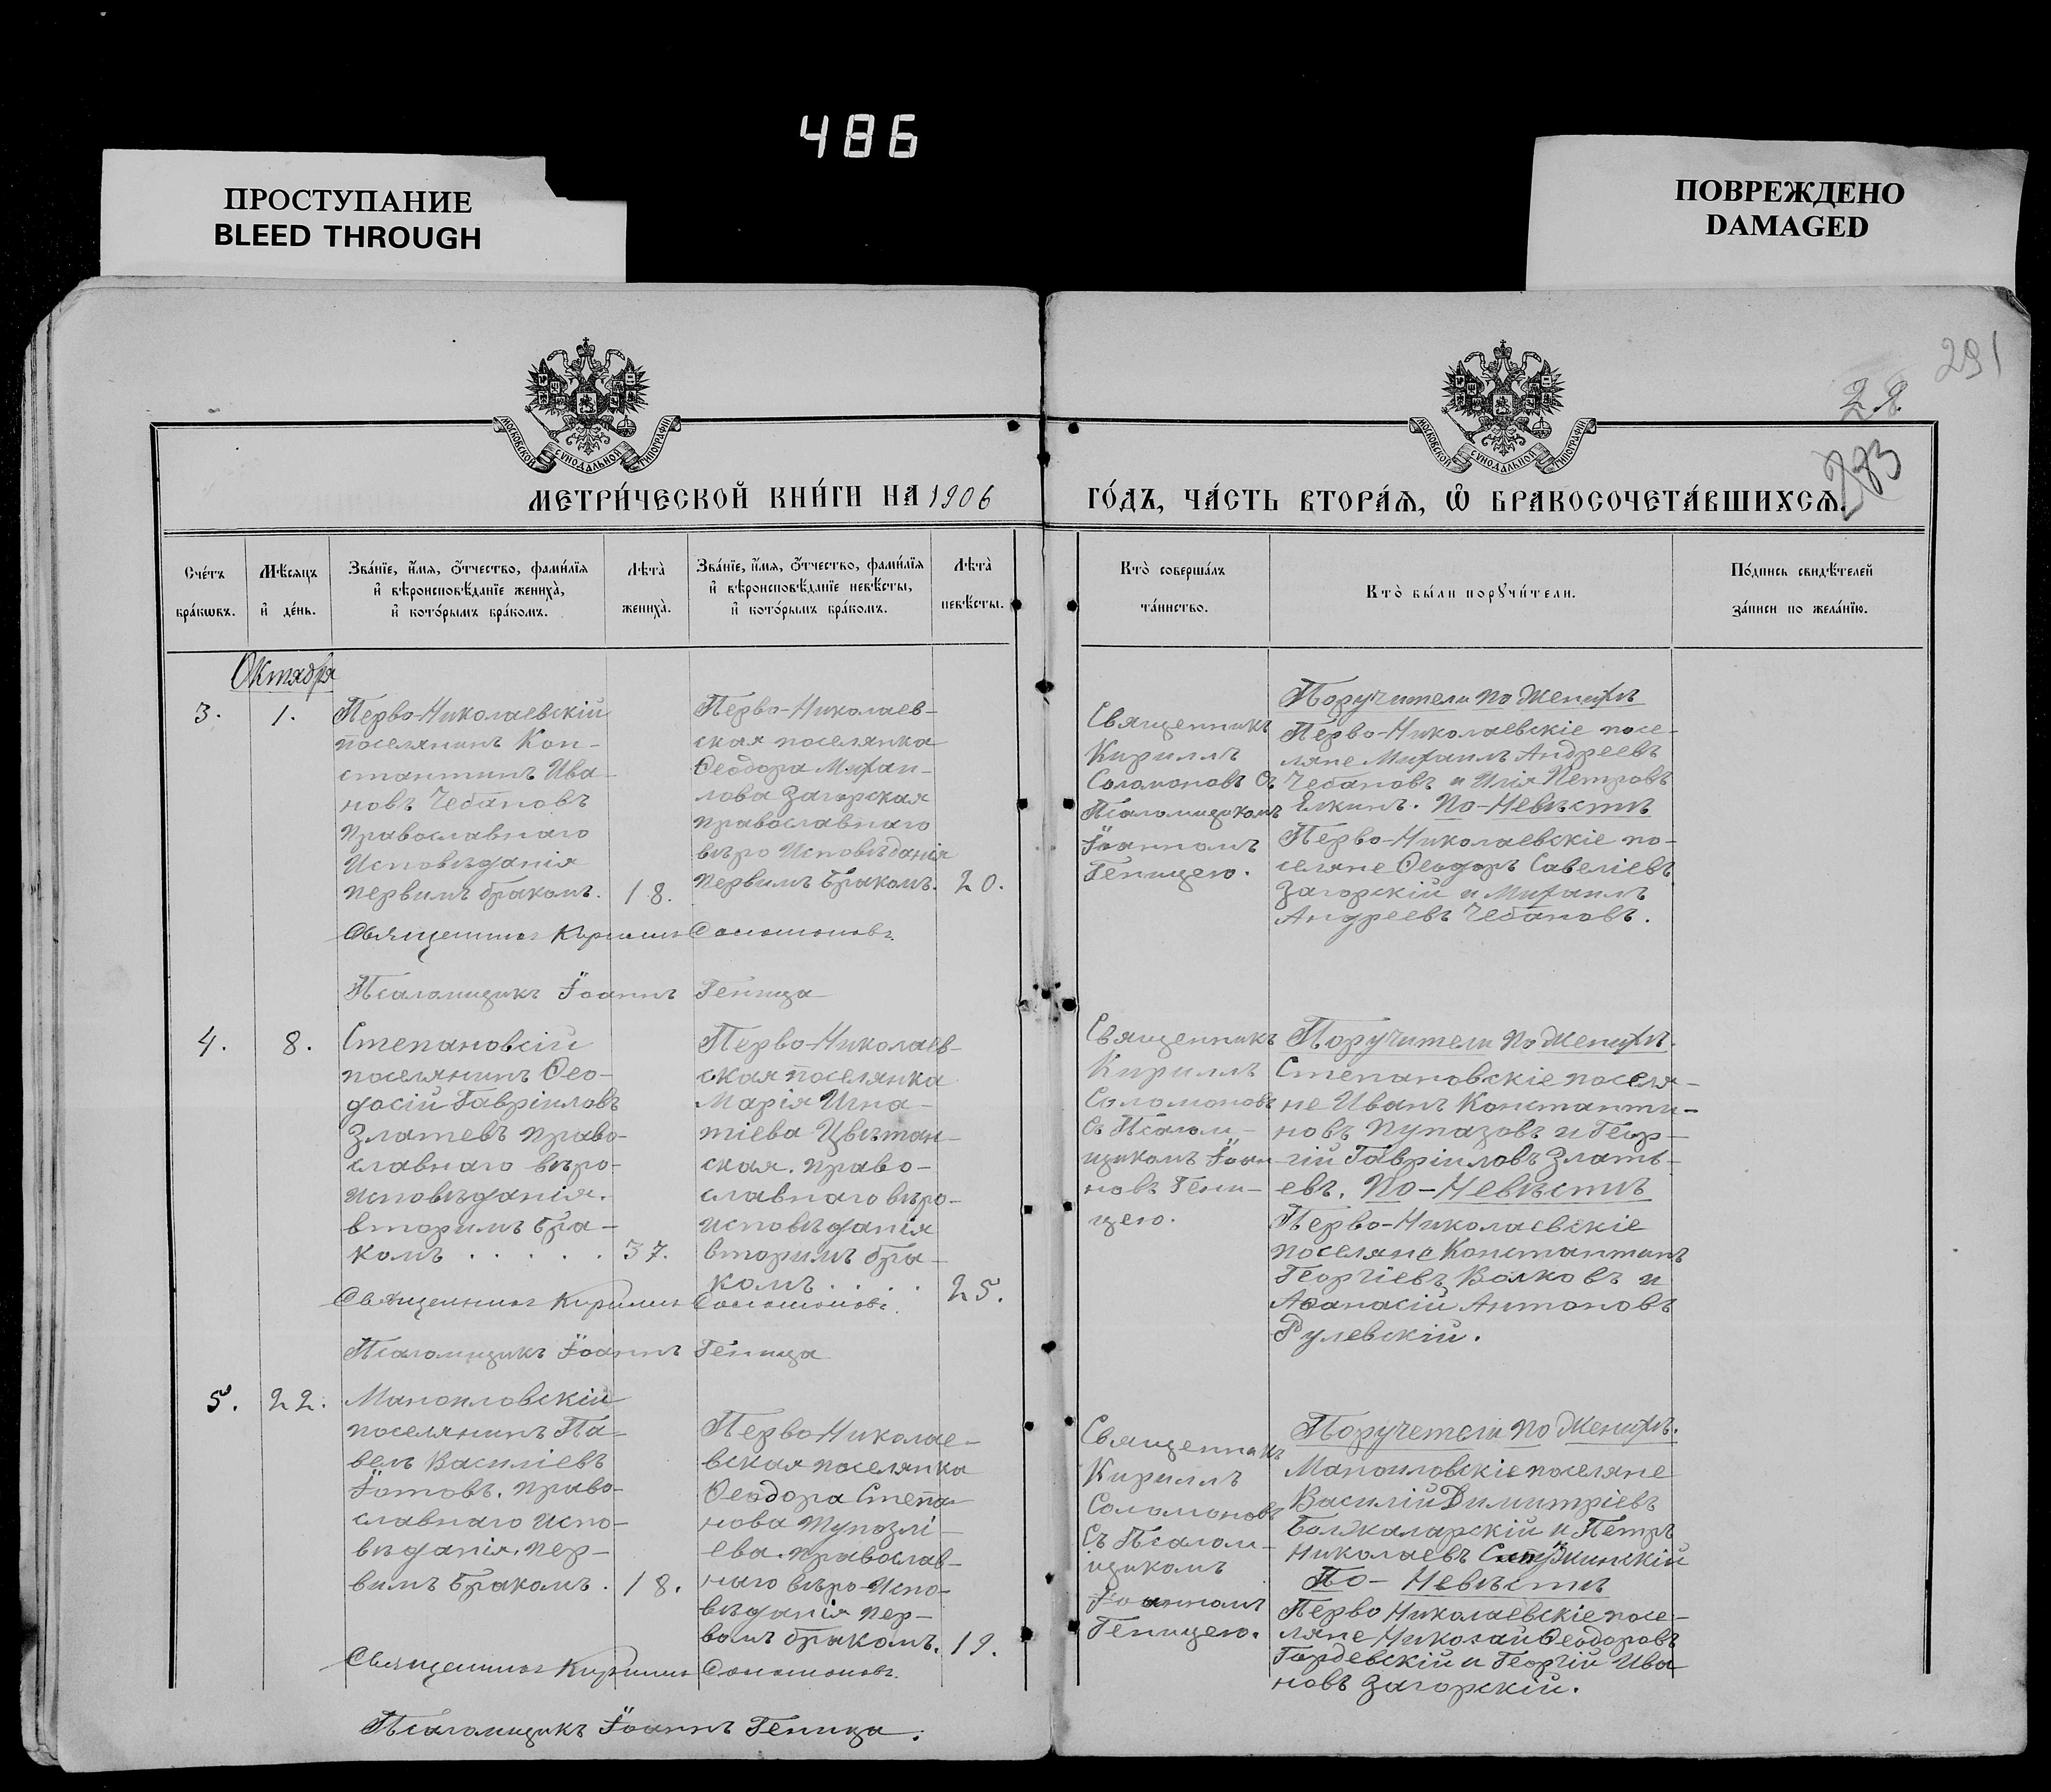 486
ПРОСТУПАНИЕ
BLEED THROUGH
ПОВРЕЖДЕНО
DAMAGED
291
283
МОСКОВСКОЙ СѴНОДАЛЬНОЙ ТИПОГРАФІИ
МОСКОВСКОЙ СѴНОДАЛЬНОЙ ТИПОГРАФІИ
МЕТРИ́ЧЕСКОЙ КНИ́ГИ НА 1906
ГО́ДЪ, ЧА́СТЬ ВТОРА́Ѧ, Ѽ БРАКОСОЧЕТА́ВШИХСѦ.
Сче́тъ
бра́кѡвъ.
Мѣ́сяцъ
и҆ де́нь.
Зва́нїе, и҆́мя, ѻ҆́тчество, фами́лїя
и҆ вѣроисповѣ́данїе жениха̀,
и҆ кото́рымъ бра́комъ.
Лѣта̀
жениха̀.
Зва́нїе, и҆́мя, ѻ҆́тчество, фами́лїя
и҆ вѣроисповѣ́данїе невѣ́сты,
и҆ кото́рымъ бра́комъ.
Лѣта̀
невѣ́сты.
Кто̀ соверша́лъ
та́инство.
Кто̀ бы́ли порꙋчи́тели.
По́дпись свидѣ́телей
за́писи по жела́нїю.
Октября
3.
1.
Перво-Николаевскій
поселянинъ Кон-
стантинъ Ива-
новъ Чебановъ
православнаго
Исповѣданія
первимъ бракомъ.
18.
Перво-Николаев-
ская поселянка
Ѳеодора Михаи-
лова Загорская
православнаго
вѣро Исповѣданія
первимъ бракомъ.
20.
Священникъ
Кириллъ
Соломоновъ Съ
Псаломщикомъ
Іоанномъ
Геницею.
Поручители по Женихѣ
Перво-Николаевскіе посе-
ляне Михаилъ Андреевъ
Чебановъ и Илія Петровъ
Елкинъ. По-Невѣстѣ
Перво-Николаевскіе по-
селяне Ѳеодоръ Савеліевъ
Загорскій и Михаилъ
Андреевъ Чебановъ.
Священникъ Кириллъ Соломоновъ
Псаломщикъ Іоаннъ Геница
4.
8.
Степановсій
поселянинъ Ѳео-
досій Гавріиловъ
Златевъ право-
славнаго вѣро-
исповѣданія.
вторимъ бра-
комъ . . . . .
37.
Перво-Николаев-
ская поселянка
Марія Игна-
тіева Цвѣтан-
ская. право-
славнаго вѣро-
исповѣданія
вторимъ бра-
комъ . . . .
25.
Священникъ
Кириллъ
Соломоновъ
Съ Псалом-
щикомъ Іоан-
новъ Гени-
цею.
Поручители по Женихѣ.
Степановскіе поселя-
не Иванъ Константи-
новъ Пупазовъ и Геор-
гій Гавріиловъ Злать-
евъ. По-Невѣстѣ
Перво-Николаевскіе
поселяне Константинъ
Георгіевъ Волковъ и
Аѳанасій Антоновъ
Рулевскій.
Священникъ Кириллъ Соломоновъ.
Псаломщикъ Іоаннъ Геница
5.
22.
Маноиловскій
поселянинъ Па-
велъ Василіевъ
Іотовъ. право-
славнаго Испо-
вѣданія. пер-
вимъ бракомъ.
18.
Перво Николае-
вская поселянка
Ѳеодора Степа-
нова Тупозлі-
ева. православ-
наго вѣро-Испо-
вѣданія пер-
вомъ бракомъ.
19.
Священникъ
Кириллъ
Соломоновъ
Съ Псалом-
щикомъ
Іоанномъ
Геницею.
Поручетели по Женихѣ.
Маноиловскіе поселяне
Василій Димитріевъ
Болжаларскій и Петръ
Николаевъ
По-Невѣстѣ
Перво Николаевскіе посе-
ляне Николай Ѳеодоровъ
Гордевскій и Георгій Ива
новъ Загорскій.
Священникъ Кириллъ Соломоновъ.
Псаломщикъ Іоаннъ Геница.